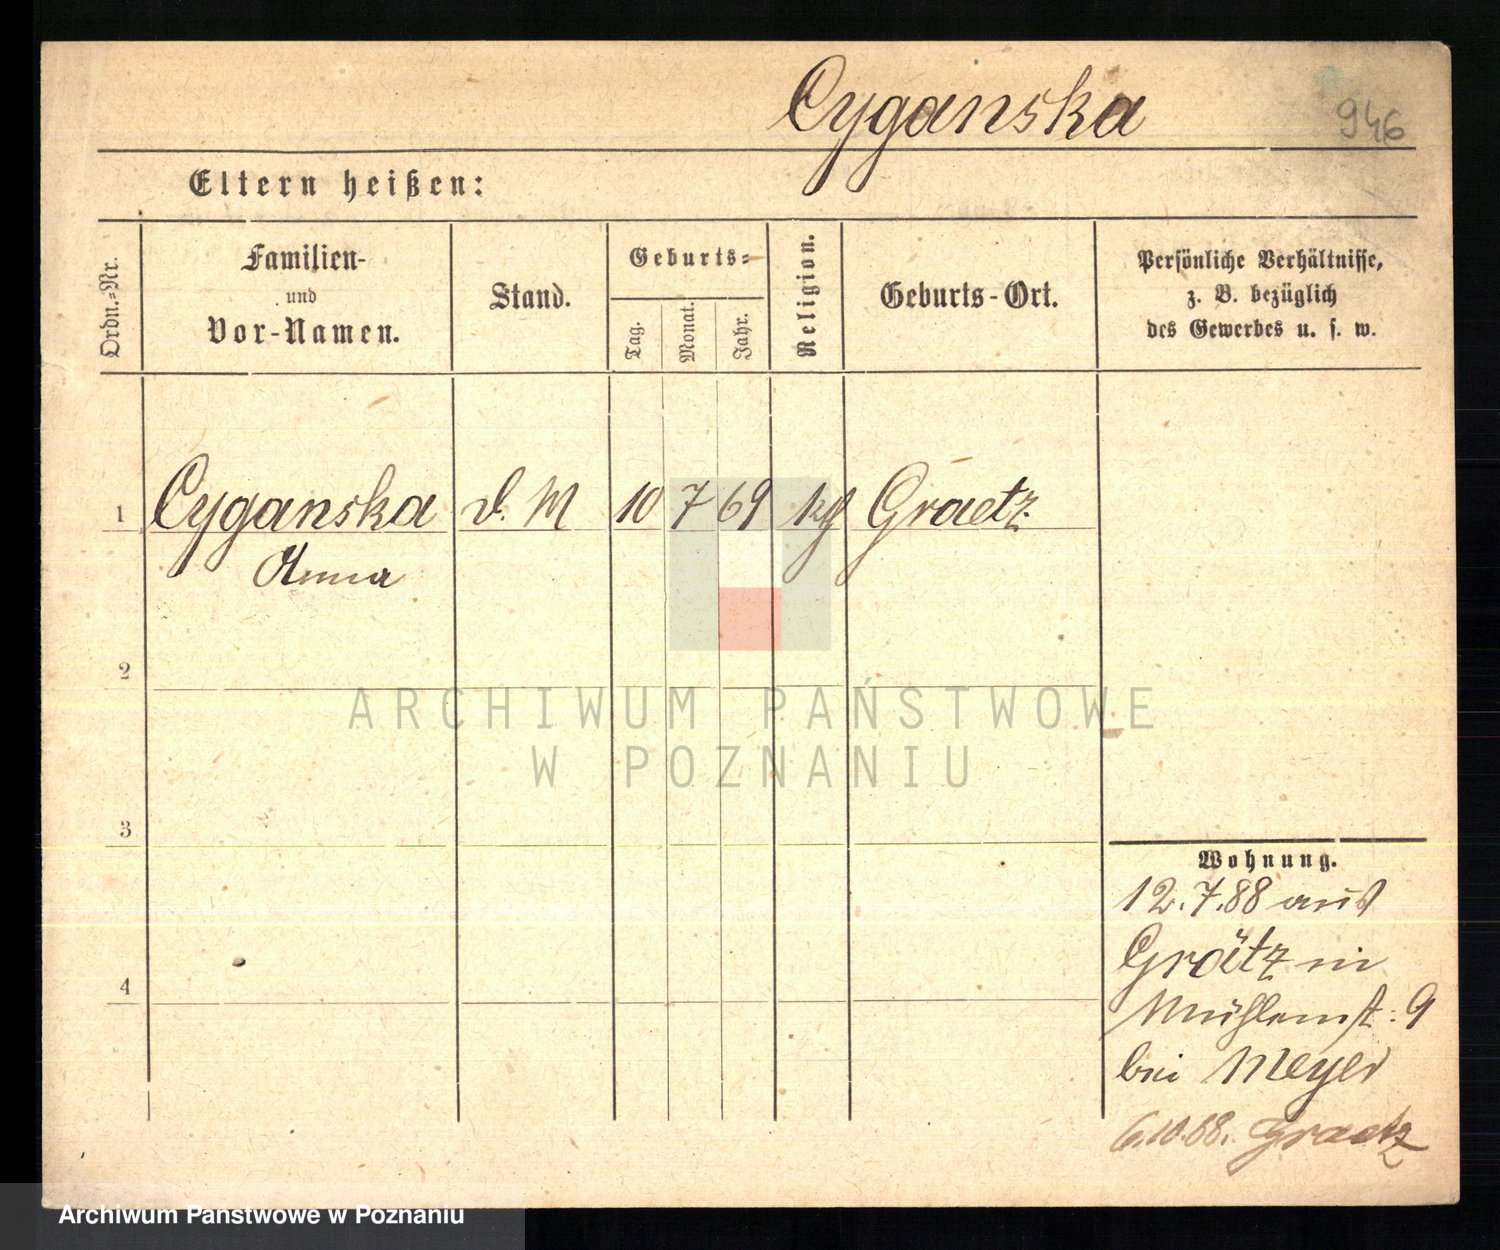 Cyganska
946
Eltern heißen:
Ordn.=Nr.
Familien-
und
Vor-Namen.
Stand.
Geburts=
Tag.
Monat.
Jahr.
Religion.
Geburts-Ort.
Persönliche Verhältnisse,
z. B. bezüglich
des Gewerbes u. s. w.
1 Cyganska d. M 10 7 69 kg Graetz
Anna
2
ARCHIWUM PAŃSTWOWE
W POZNANIU
3
4
Wohnung.
12.7.88 aus
Grätz in
Mühlenst: 9
bei Meyer
6.10.88. Graetz
Archiwum Państwowe w Poznaniu